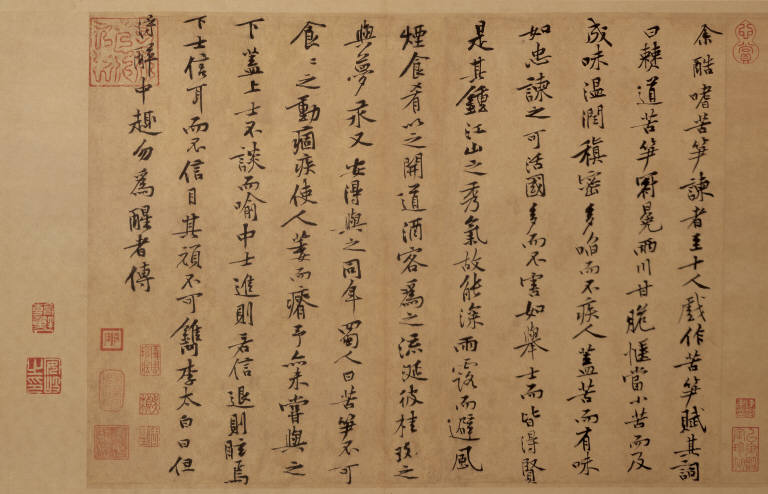 余酷嗜苦笋諫者至十人戲作苦笋賦其詞
曰僰道苦笋冠冕兩川甘脆愜當小苦而及
成味溫潤稹密多啗而不疾人盖苦而有味
如忠諫之可活國多而不害如舉士而皆得賢
是其鍾江山之秀氣故能深雨露而避風
煙食肴以之開道酒客爲之流涎彼桂玫之
與夢汞又安得與之同年蜀人曰苦笋不可
食〻之動痼疾使人萎而瘠予亦未嘗與之
下盖上士不談而喻中士進則若信退則眩焉
下士信耳而不信目其頑不可鐫李太白曰但
得醉中趣勿爲醒者傳